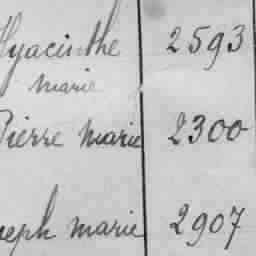 Hyacinthe 2593
marie
Pierre marie 2300
seph marie 2907